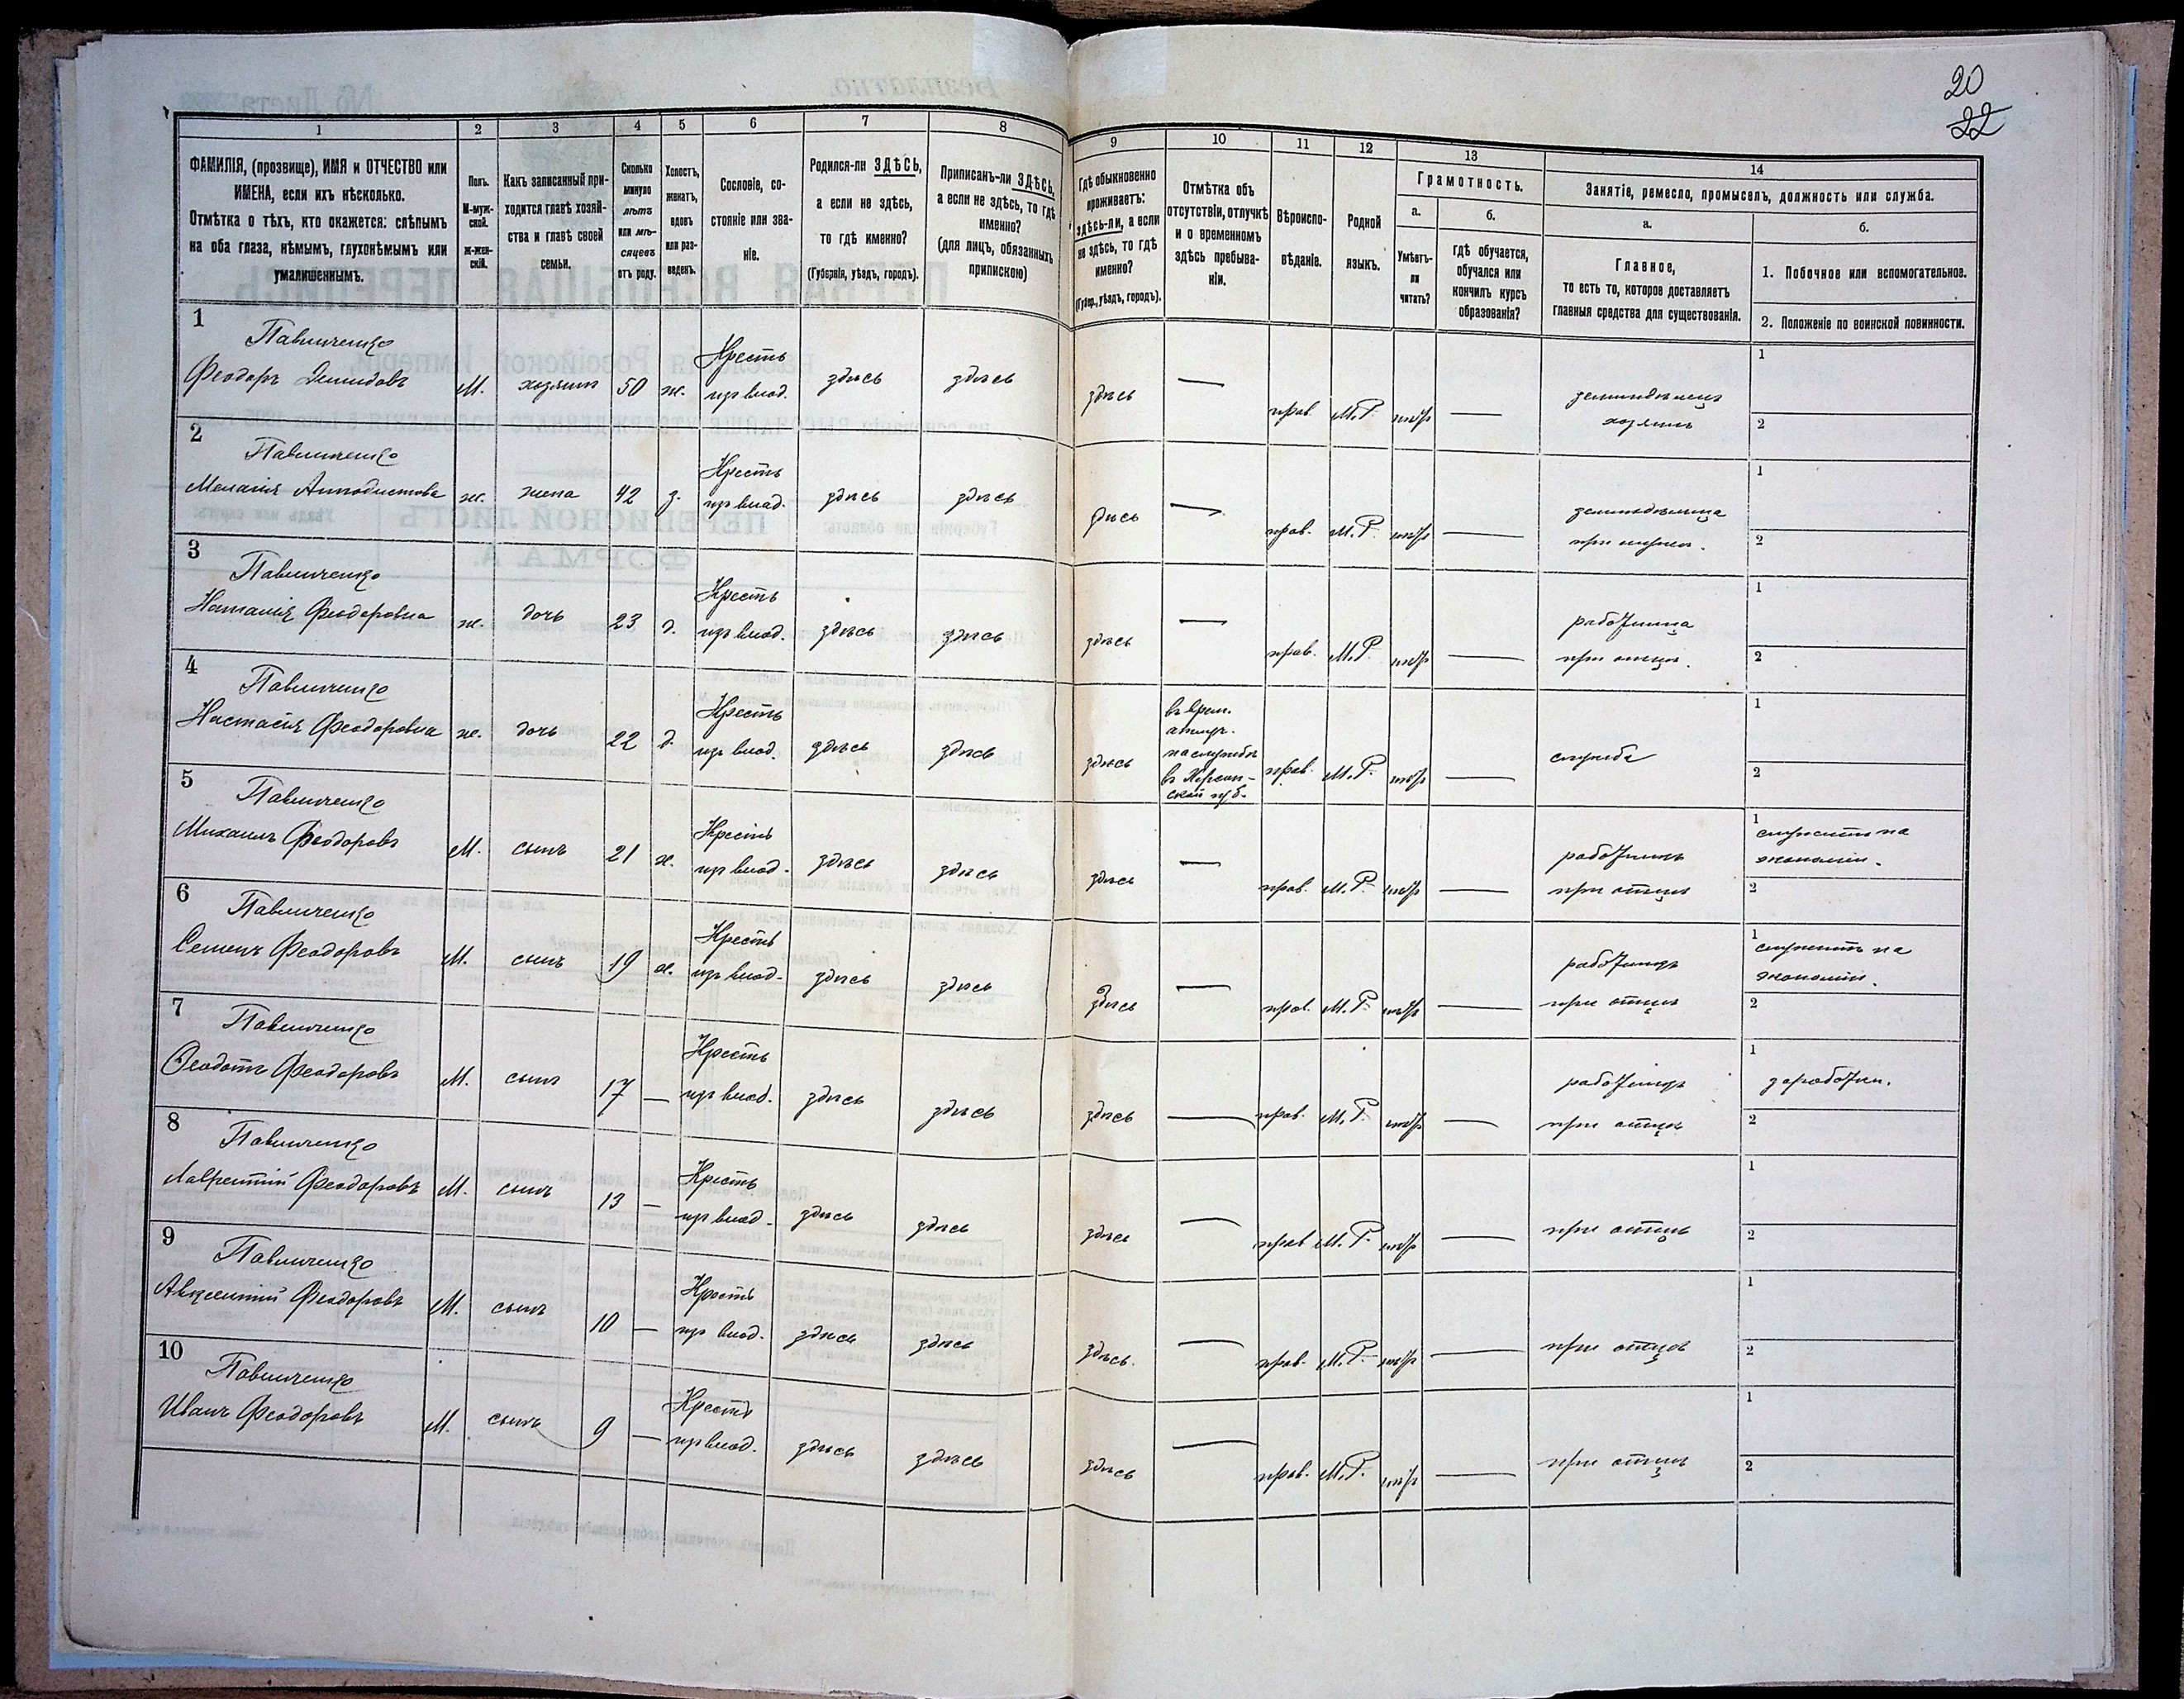 20
22
1
2
3
4
5
6
7
8
9
10
11
12
13
14
ФАМИЛІЯ, (прозвище), ИМЯ и ОТЧЕСТВО или
ИМЕНА, если ихъ нѣсколько.
Отмѣтка о тѣхъ, кто окажется: слѣпымъ
на оба глаза, нѣмымъ, глухонѣмымъ или
умалишеннымъ.
Полъ.
М-муж-
ской.
Ж-жен-
скій.
Какъ записанный при-
ходится главѣ хозяй-
ства и главѣ своей
семьи.
Сколько
минуло
лѣтъ
или мѣ-
сяцевъ
отъ роду.
Холостъ,
женатъ,
вдовъ
или раз-
веденъ.
Сословіе, со-
стояніе или зва-
ніе.
Родился-ли ЗДѢСЬ,
а если не здѣсь,
то гдѣ именно?
(Губернія, уѣздъ, городъ).
Приписанъ-ли ЗДѢСЬ,
а если не здѣсь, то гдѣ
именно?
(для лицъ, обязанныхъ
припискою)
Гдѣ обыкновенно
проживаетъ:
здѣсь-ли, а если
не здѣсь, то гдѣ
именно?
(Губер., уѣздъ, городъ).
Отмѣтка объ
отсутствіи, отлучкѣ
и о временномъ
здѣсь пребыва-
ніи.
Вѣроиспо-
вѣданіе.
Родной
языкъ.
Грамотность.
а.
Умѣетъ-
ли
читать?
б.
гдѣ обучается,
обучался или
кончилъ курсъ
образованія?
Занятіе, ремесло, промыселъ, должность или служба.
а.
Главное,
то есть то, которое доставляетъ
главныя средства для существованія.
б.
1. Побочное или вспомогательное.
2. Положеніе по воинской повинности.
1
Павличенко
Феодоръ Демидовъ
М. хозяин 50 ж.
Кресть
изъ влад.
здѣсь здѣсь здѣсь — прав. М.Р. —
земледѣлец
хозяинъ
1
2
2
Павличенко
Мелания
ж. жена 42 з.
Кресть
изъ влад.
здѣсь здѣсь здѣсь — прав. М.Р. —
1
2
3
Павличенко
Наталия Феодоровна
ж. дочь 23 д.
Кресть
изъ влад.
здѣсь здѣсь здѣсь — прав. М.Р. —
работница
при отцѣ.
1
2
4
Павличенко
Настасия Феодоровна
ж. дочь 22 д.
Кресть
изъ влад.
здѣсь здѣсь здѣсь
въ врем.
на службѣ
въ Херсон-
ской губ.
прав. М.Р. —
служба
1
2
5
Павличенко
Михаилъ Феодоровъ
М. сынъ 21 х.
Кресть
изъ влад.
здѣсь здѣсь здѣсь — прав. М.Р. —
работникъ
при отцѣ
1
служитъ на
экономіи.
2
6
Павличенко
Семенъ Феодоровъ
М. сынъ 19 х.
Кресть
изъ влад.
здѣсь здѣсь здѣсь — прав. М.Р. —
работникъ
при отцѣ
1
служитъ на
экономіи.
2
7
Павличенко
Феодотъ Феодоровъ
М. сынъ 17 —
Кресть
изъ влад.
здѣсь здѣсь здѣсь — прав. М.Р. —
работникъ
при отцѣ
1
заработки.
2
8
Павличенко
Лаврентий Феодоровъ
М. сынъ 13 —
Кресть
изъ влад.
здѣсь здѣсь здѣсь — прав. М.Р. —
при отцѣ
1
2
9
Павличенко
Авксентий Феодоровъ
М. сынъ 10 —
Кресть
изъ влад.
здѣсь здѣсь здѣсь. — прав. М.Р. —
при отцѣ
1
2
10
Павличенко
Иванъ Феодоровъ
М. сынъ 9 —
Кресть
изъ влад.
здѣсь здѣсь здѣсь — прав. М.Р. —
при отцѣ
1
2